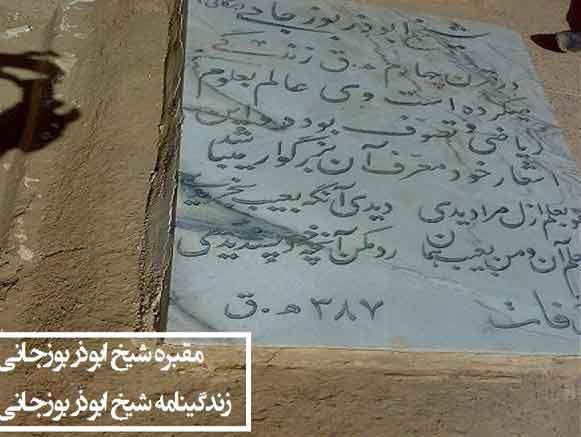 شیخ ابوذر بوزجانی
در قرن چهارم ه.ق زندگی
میکرده است وی عالم بعلوم
ریاضی و تصوف بوده و این
اشعار خود معرف آن بزرگوار میباشد
تو بعلم ازل مرا دیدی دیدی آنگه بعیب بخریدی
تو بعلم آن و من بعیب همان رد مکن آنچه خود پسندیدی
وفات ۳۸۷ ه.ق
مقبره شیخ ابوذر بوزجانی
زندگینامه شیخ ابوذر بوزجانی